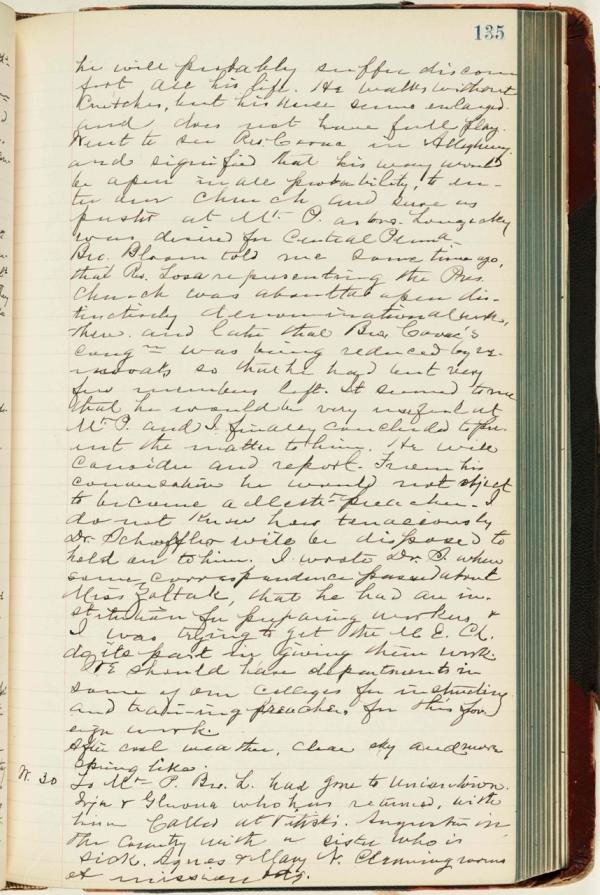 135
he will probably suffer discom
fort all his life. He walks without
Crutches, but his knee seems enlarged
and does not have full play.
Went to see Rev. in Allegheny
and signified that his way would
be open in all probability, to en-
ter our church and serve as
pastor at Mt. P. as bro.
was desired for Central Penna
Bro. Bloom told me some time ago,
that Rev. Losa representing the Pres.
Church was about to open dis-
tinctively denominational work,
there and later that Bro.
congn was being reduced by re-
movals so that he had but very
few members left. It seemed to me
that he would be very useful at
Mt. P. and I finally concluded to pre-
sent the matter to him. He will
consider and report. From his
conversation he would not object
to become a Meth. preacher. I
do not know how tenaciously
Dr. Schauffler will be disposed to
hold on to him. I wrote Dr. S. when
some correspondence passed about
Miss Zaltak, that he had an in-
stitution for preparing workers &
I was trying to get the M. E. Ch.
do its part in giving them work.
We should have departments in
some of our colleges for instructing
and training preachers for this for
eign work
After cool weather, clear sky and more
Spring like.
W. 30 To Mt. P. Bro. L. had gone to Uniontown.
& who has returned, with
him Called at Augustin in
the Country with a sister who is
sick. Agnes & Mary N. Cleaning rooms
at mission